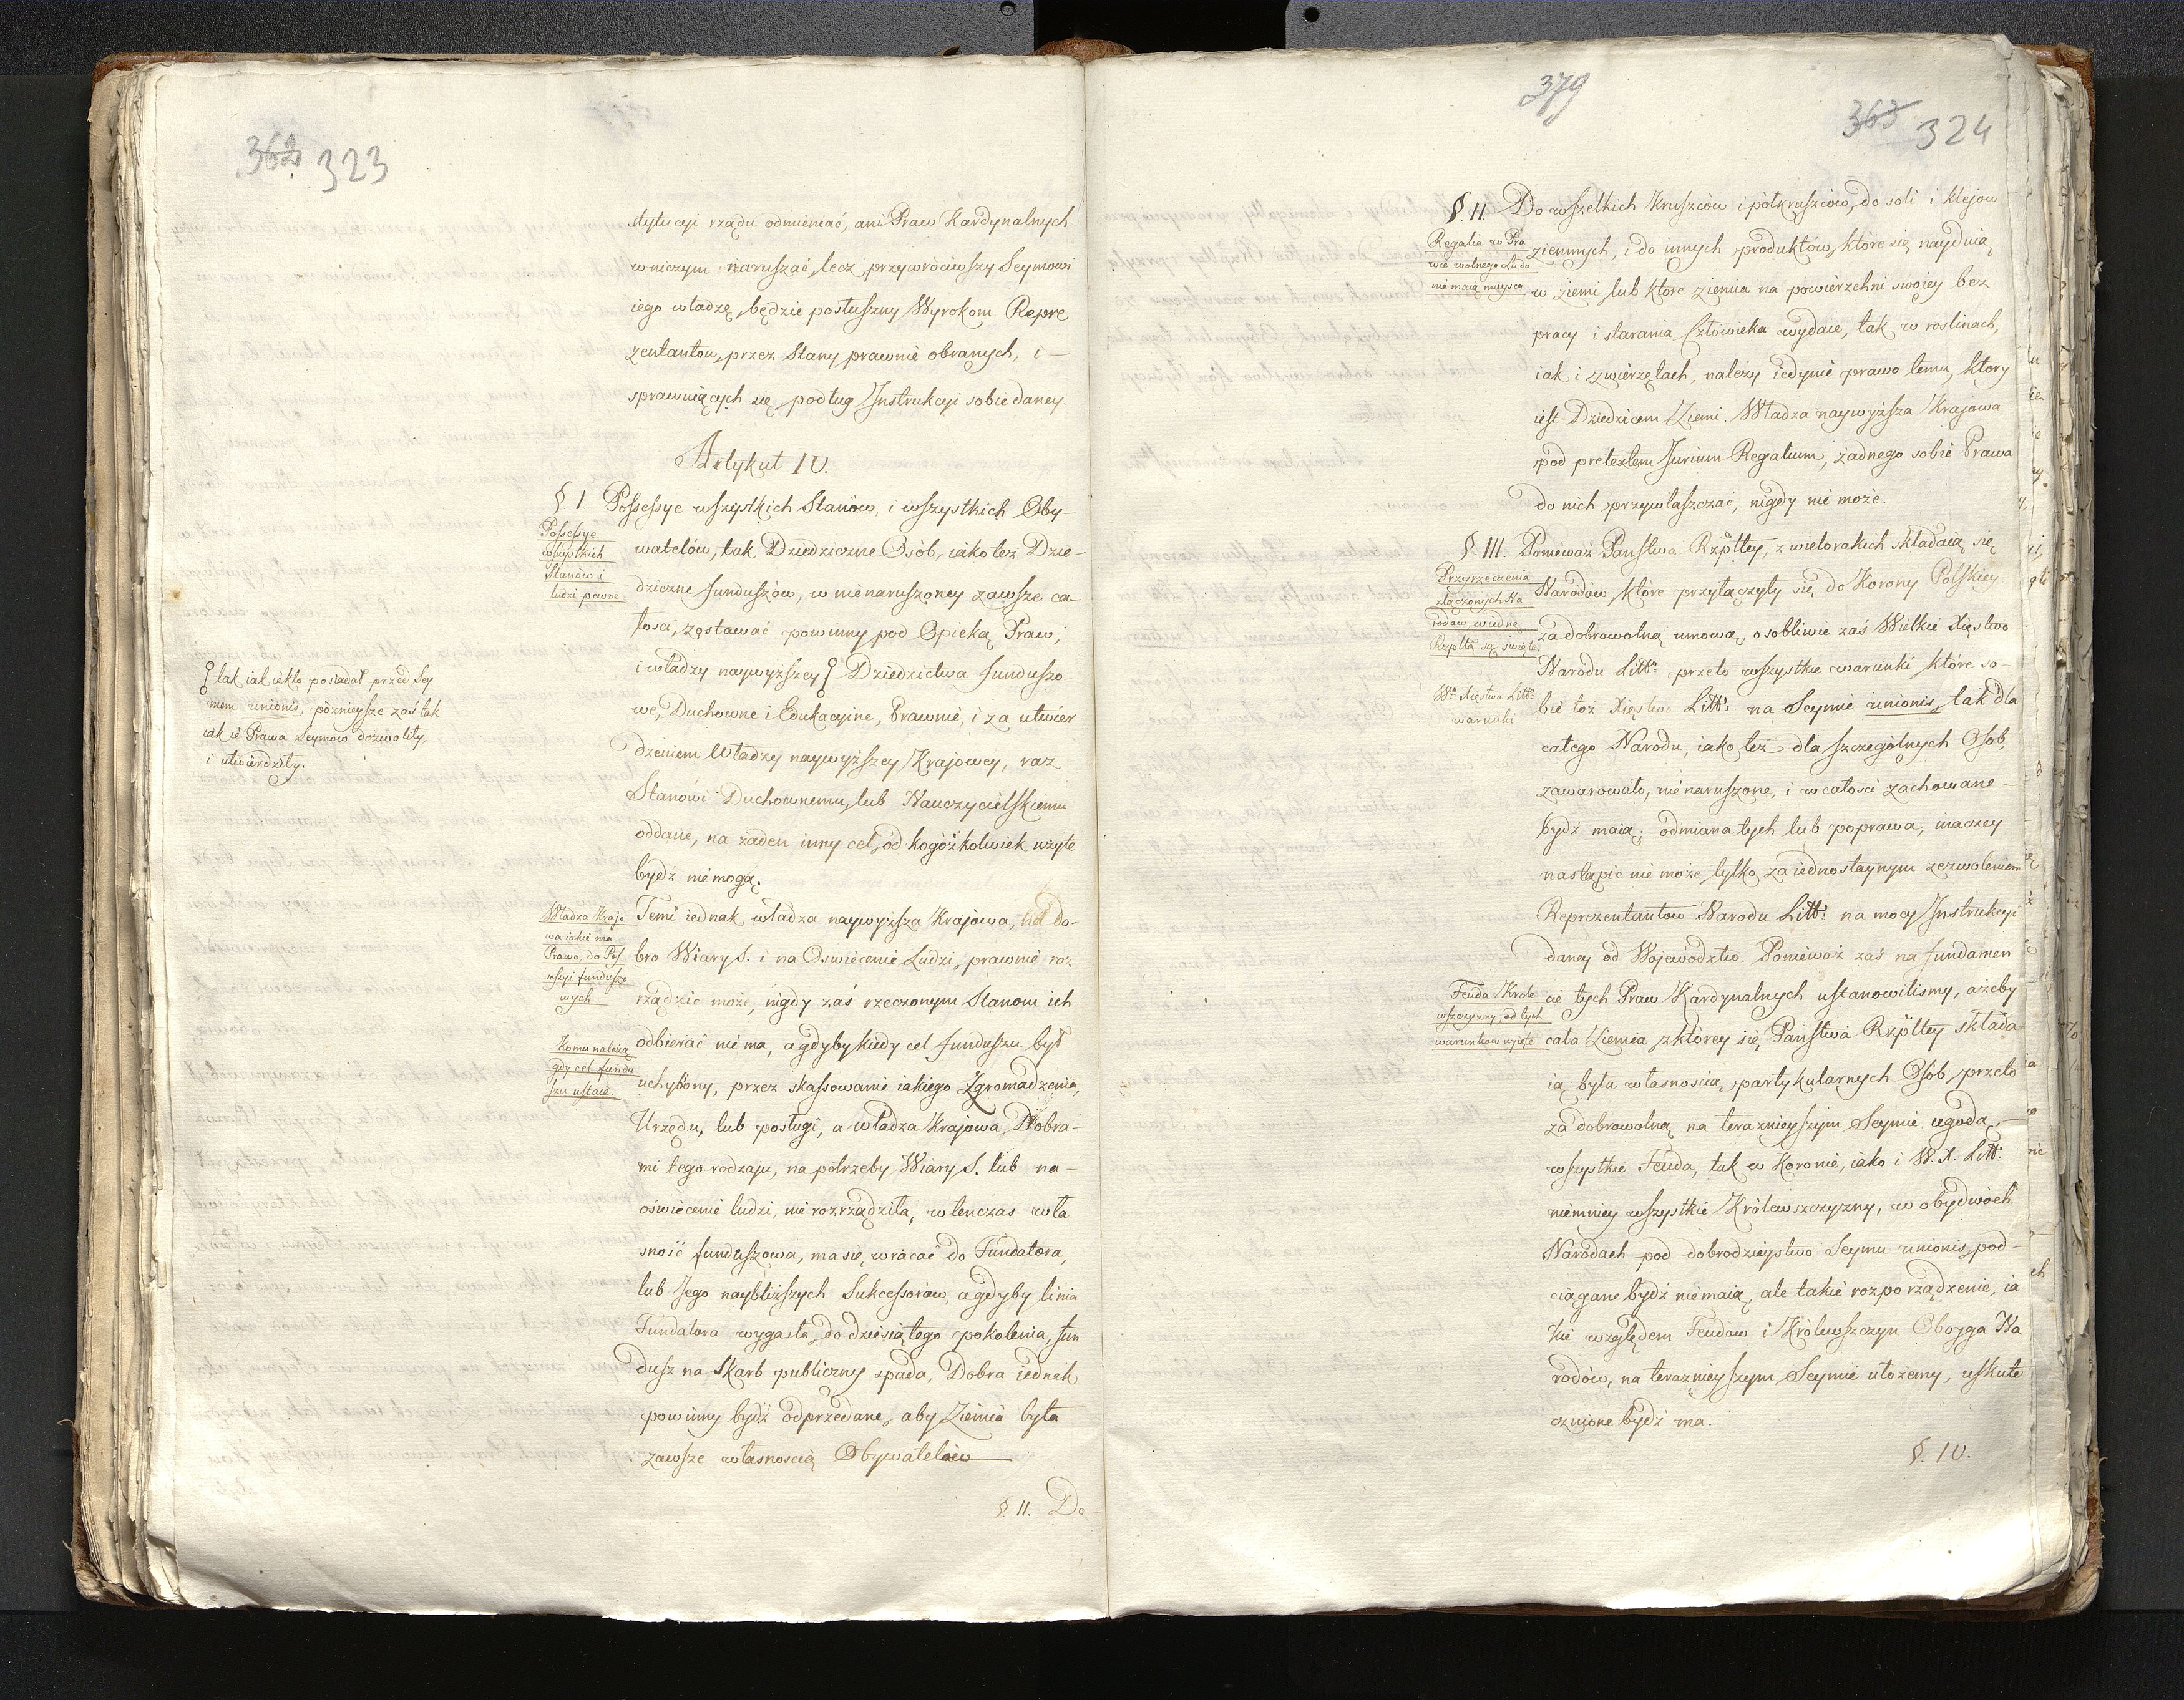 362 323
stytucyi rządu odmieniać, ani Praw Kardynalnych
w niczym naruszać, lecz przywróciwszy Seymowi
iego władzę, będzie posłuszny Wyrokom Repre
zentantow, przez Stany prawnie obranych, i —
sprawuiących się podług Instrukcyi sobie daney.
Artykuł IV.
§. I. Possessye wszystkich Stanów, i wszystkich Oby-
Possessye
wszystkich
Stanów i
ludzi pewne
watelów, tak Dziedziczne Osób, iako też Dzie-
dziczne funduszów, w nienaruszoney zawsze ca-
łosci, zostawać powinny pod Opieką Praw,
i władzy naywyższey Dziedzictwa fundusze
we, Duchowne i Edukacyine, Prawnie, i za utwier
dzeniem Władzy naywyższey Krajowey, raz
Stanowi Duchownemu, lub Nauczycielskiemu
oddane, na żaden inny cel, od kogóżkolwiek użyte
bydź nie mogą.
tak iak ie kto posiadał przed Sey
mem unionis, poznieysze zaś tak
iak ie Prawa Seymow dozwoliły,
i utwierdziły.
Władza Krajo
wa iakie ma
Prawo, do Pos
sessyi fundusze
wych
Temi iednak władza naywyższa Krajowa, na do-
bro Wiary S. i na Oswiecenie Ludzi, prawnie roz
rządzic może, nigdy zaś rzeczonym Stanom ich
odbierać nie ma, a gdyby kiedy cel funduszu był
Komu należą
gdy cel fundu
szu ustaie.
uchybiony, przez skassowanie iakiego Zgromadzenia,
Urzędu, lub posługi, a władza Krajowa, Dobra-
mi tego rodzaju, na potrzeby Wiary S. lub na —
oświecenie ludzi, nie rozrządziła, wtenczas wła
sność funduszowa, ma się wracać do Fundatora,
lub Jego naybliższych Sukcessorów, a gdyby linia
Fundatora wygasła, do dziesiątego pokolenia, fun
dusz na Skarb publiczny spada, Dobra iednak
powinny bydź odprzedane, aby Ziemia była
zawsze własnością Obywatelów —
§. II. Do
379
363 324
§. II. Do wszelkich Kruszców i półkruszców, do soli i klejow
Regalia w Pra
wie wolnego Ludu
nie maią mieysca
ziemnych, i do innych produktów, które się nayduią
w ziemi, lub ktore ziemia na powierzchni swoiey bez
pracy i starania Człowieka wydaie, tak w roslinach,
iak i zwierzętach, należy iedynie prawo temu, ktory
iest Dziedzicem Ziemi. Władza naywyższa Krajowa
pod pretextem Jurium Regalium, żadnego sobie Prawa
do nich przywłaszczać, nigdy nie może.
§. III. Ponieważ Panstwa Rzpltey, z wielorakich składaią się
Przyrzeczenia
złączonych Na
rodow, wiednę
Rzpltą są swięte
Narodow, które przyłączyły się do Korony Polskiey
za dobrowolną umową, osobliwie zaś Wielkie Xięstwo
Narodu Litt: przeto wszystkie warunki, które so-
Wo Xięstwa Litto
warunki
bie toż Xięstwo Litt: na Seymie unionis, tak dla
całego Narodu, iako też dla szczególnych Osob,
zawarowało, nienaruszone, i w całosci zachowane —
bydź maią; odmiana tych lub poprawa, inaczey
nastąpic nie może, tylko za iednostaynym zezwoleniem
Reprezentantow Narodu Litt: na mocy Instrukcyi
daney od Wojewodztw. Ponieważ zaś na fundamen
Feuda Krole
wszczyzny, od tych
warunkow wyięte
cie tych Praw Kardynalnych ustanowilismy, ażeby
cała Ziemia, z którey się Panstwa Rzpltey składa
ią, była własnoscią partykularnych Osób, przeto
za dobrowolną na teraznieyszym Seymie ugodą, —
wszystkie Feuda, tak w Koronie, iako i W. X. Litt:
niemniey wszystkie Królewszczyzny, w obydwóch
Narodach pod dobrodzieystwo Seymu unionis, pod —
ciągane bydź nie maią, ale takie rozporządzenie, ia
kie względem Feudow i Królewszczyn Oboyga Na
rodów, na teraznieyszym Seymie ułożemy, uskute
cznione bydź ma.
§. IV.